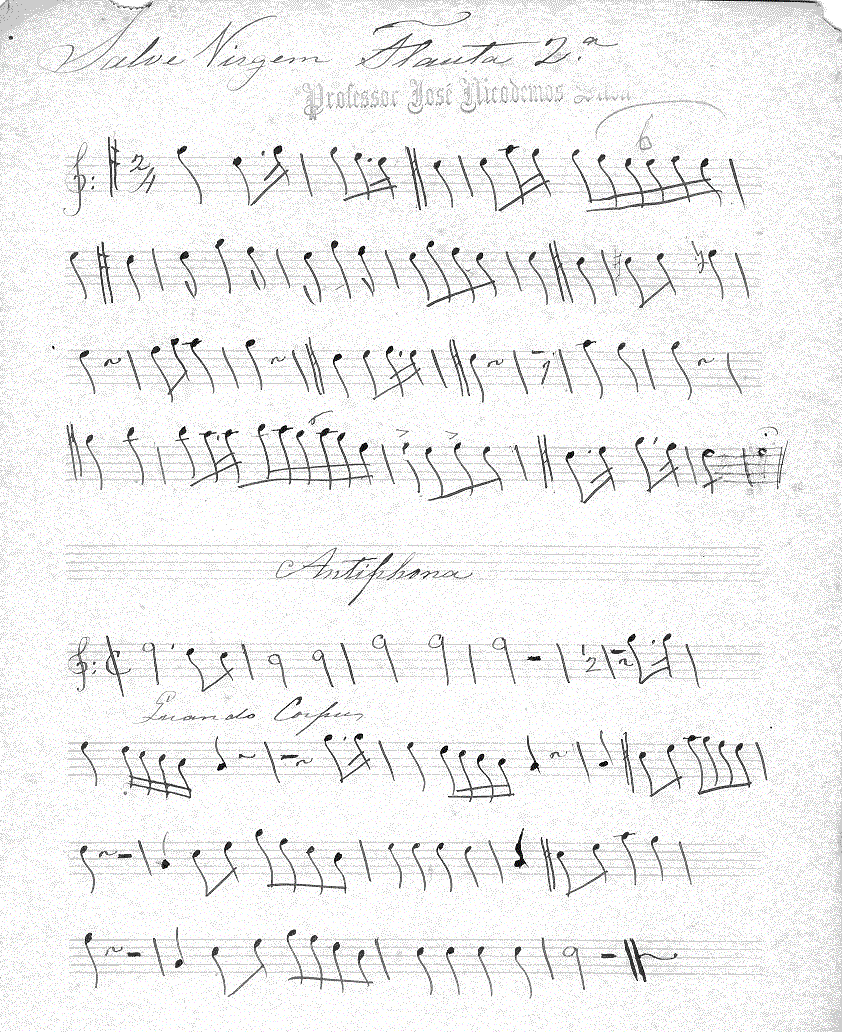 Salve Virgem Flauta 2.ª
Professor José Nicodemos Silva
2/4
6
6
Antiphona
2
Quando Corpus